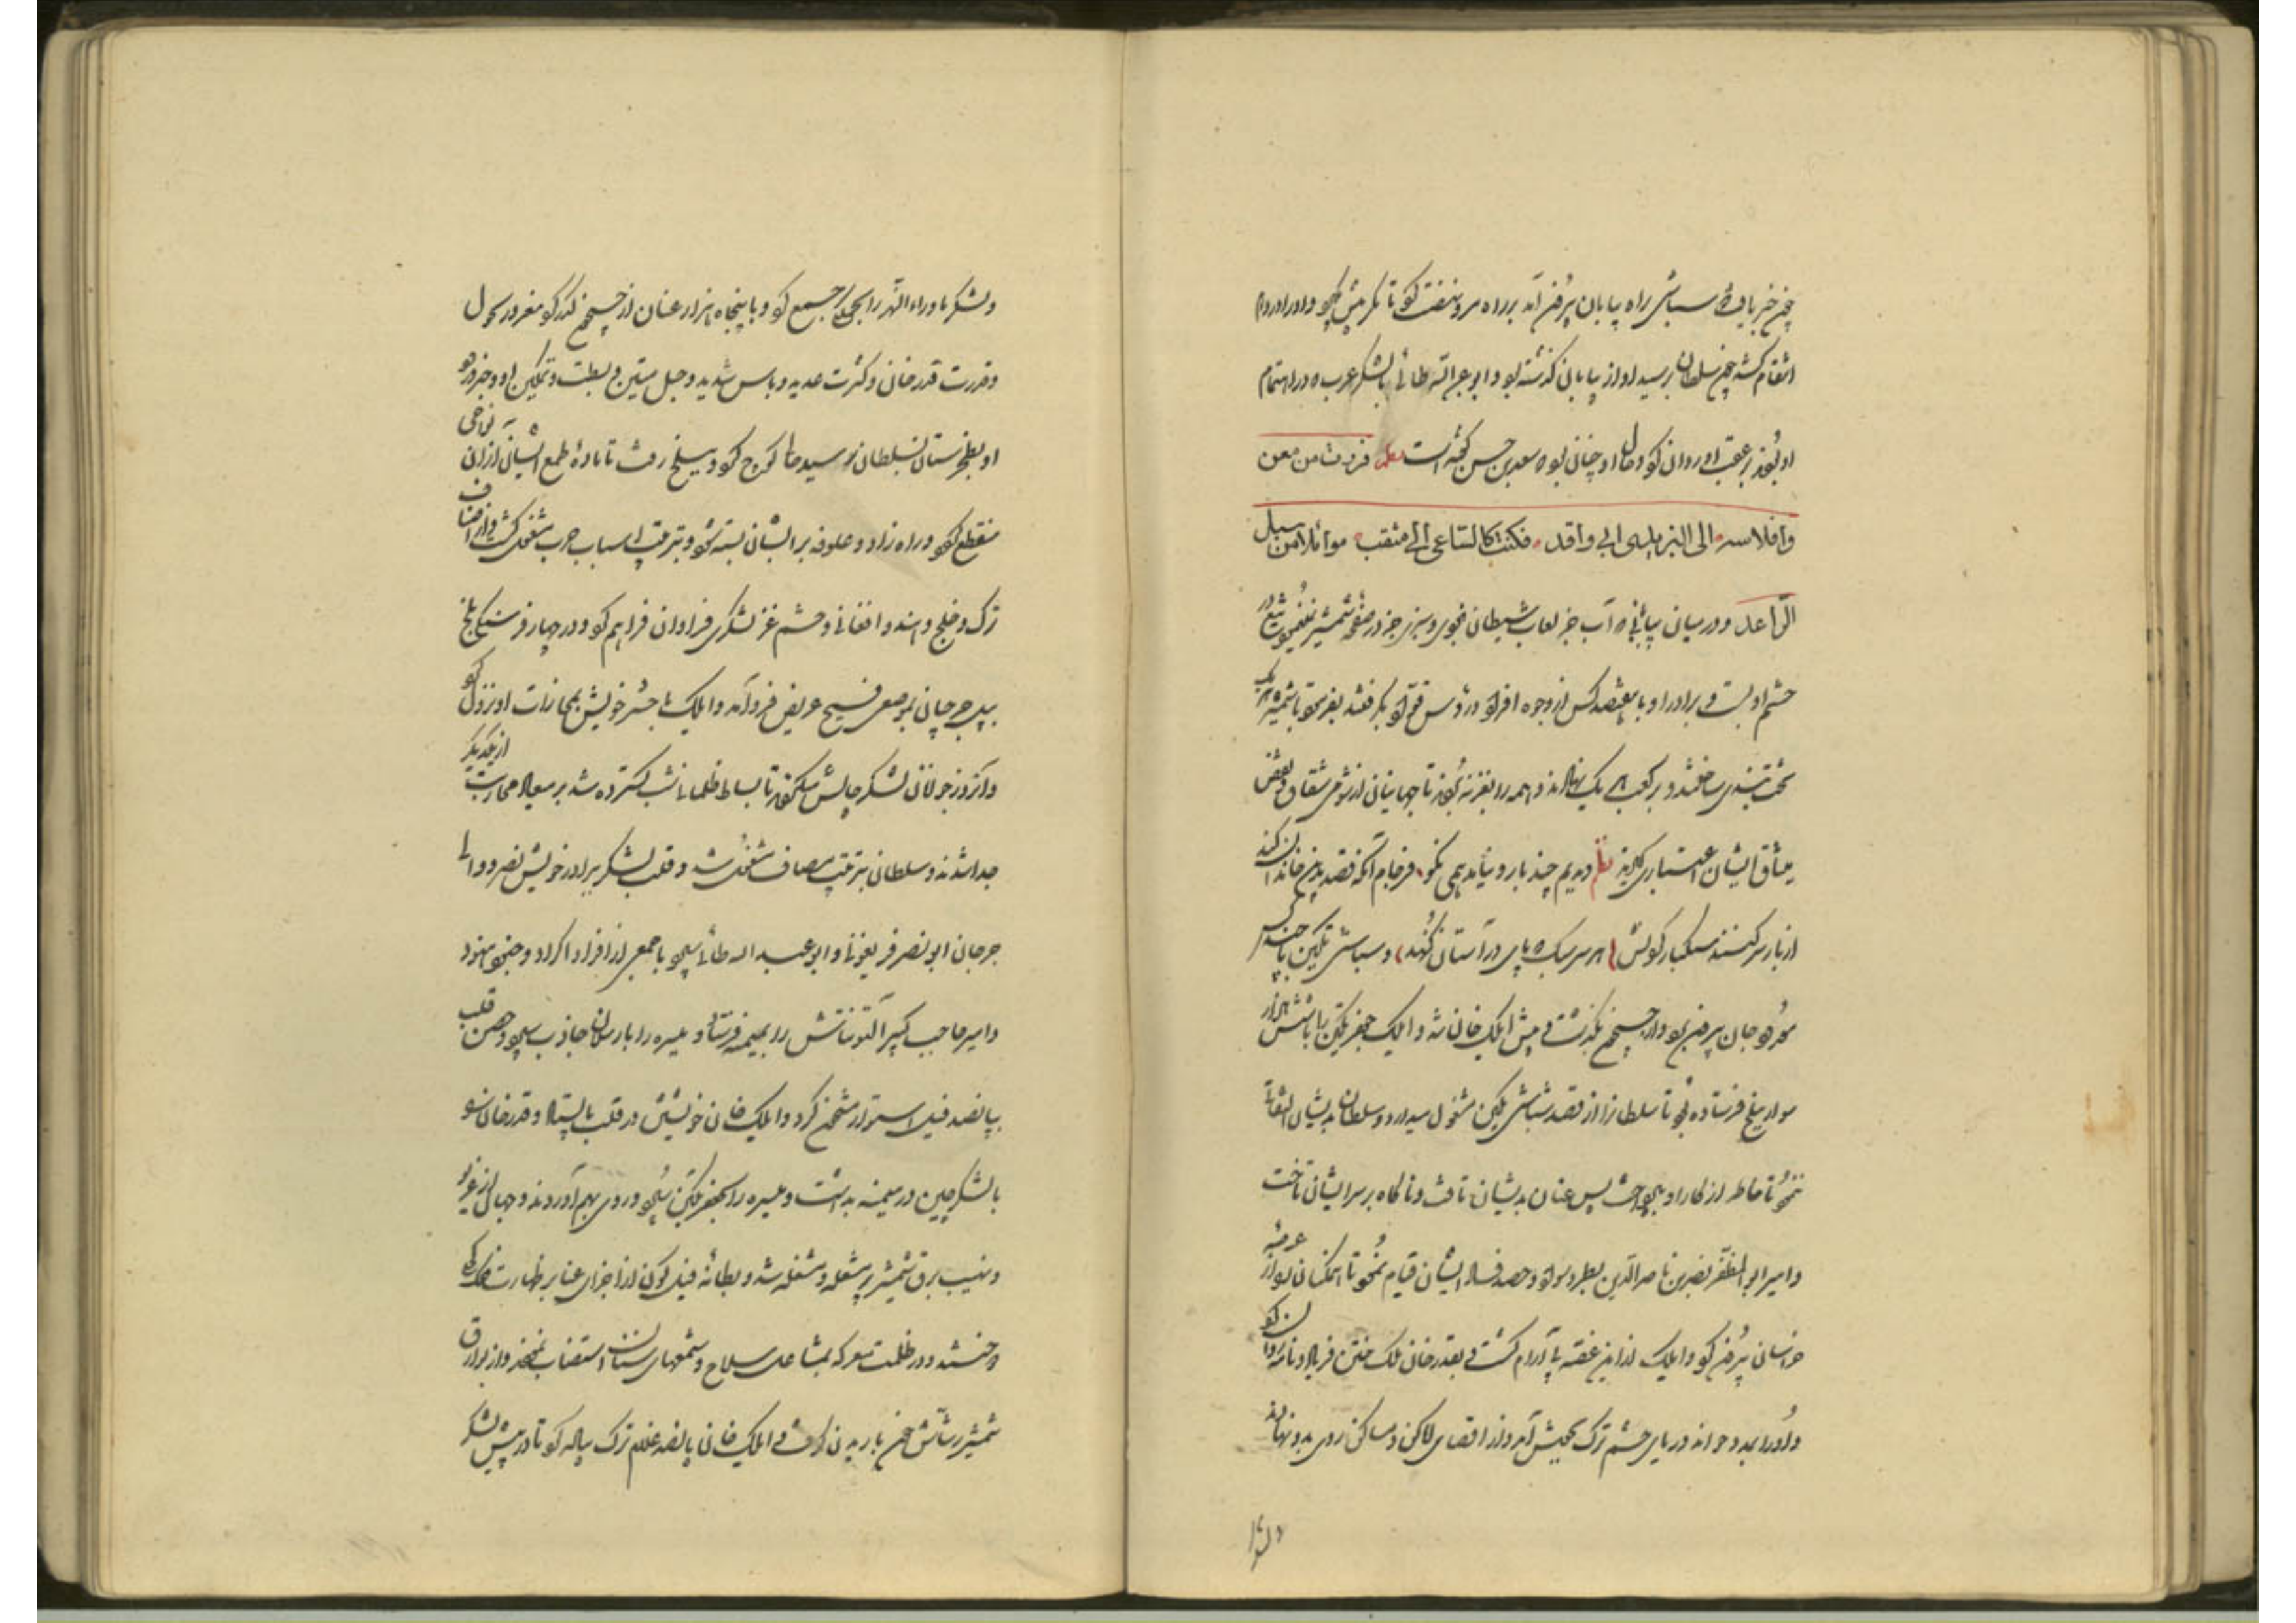 چون خبر یافت که سباشی راه بیابان بیرون آمد بر راه مرو نهضت کرد تا مگر پیش گیرد و او را در دام
انتقام کشد چون سلطان برسید او از بیابان گذشته بود و ابو عبدالله طائی با لشکر عرب که در اهتمام
او بودند بر عقب او روان کرد و حال او چنان بود که سعد بن حسن گفته است فررت من معن
وافلاسه الی الیزیدی ابی واقد فکنت کالساعی الی مثقب موائلا من سبل
الراعد و در میان بیابانی که آب جز لعاب شیطان نبود و سبزی جز در صفحه شمشیر ننمود تیغ در
حشم او بست و برادر او با هفتصد کس از وجوه افراد و رؤس قواد بگرفتند بفرمود تا شمشیر هر یک
تخت بندی ساختند و بر کعب هر یک نهادند و همه را بغزنه بردند تا جهانیان از شومی شقاق و نقض
میثاق ایشان اعتباری گیرند نظم دیدیم چند بار و نیامد همی نکو فرجام آنکه قصد بدین خاندان کند
از بار سر کنند سبکبار گردنش هر سر سبک که پای در آستان کند و سباشی تکین با چند کس
مرد جان بیرون برد و از جیحون بگذشت و پیش ایلک خان شد و ایلک جعفر تکین را با شش هزار
سوار ببلخ فرستاده بود تا سلطان را از قصد سباشی تکین مشغول میدارد و سلطان بدیشان التفات
ننمود تا خاطر از کار او بپرداخت پس عنان بدیشان تافت و ناگاه بر سر ایشان تاخت
و امیر ابو المظفر نصر بن ناصر الدین بطرد سواد و حصد فساد ایشان قیام نمود تا همکنان را از عرصه
خراسان بیرون کرد و ایلک از این غصه بی آرام گشت و بقدر خان ملک ختن فریاد نامه روان کرد
و او را بمدد خواند دریای حشم ترک بجیش آمد و از اقصای اماکن و مساکن روی بدو نهادند
و لشکر
و لشکر ماوراء النهر را بجملگی جمع کرد و با پنجاه هزار عنان از جیحون گذر کرد مغرور بحول
و قدرت قدر خان و کثرت عدید و باس شدید و حبل متین و بسطت و تمکین او و خبر ورود
او بطخرستان بسلطان رسید حالی کوچ کرد و ببلخ رفت تا ماده طمع ایشان از آن نواحی
منقطع کرد و راه زاد و علوفه بر ایشان بسته شود و بترتیب اسباب حرب مشغول گشت و از اصناف
ترک و خلج و هند و افغانی و حشم غز لشکری فراوان فراهم کرد و در چهار فرسنگی بلخ
بپل چرچیان بموضعی فسیح عریض فرود آمد و ایلک با حشر خویش بمحاذات او نزول کرد
و آن روز جوانان لشکر چالش میکردند تا بساط ظلمانی شب گسترده شد بر میعاد محاربت از یکدیگر
جدا شدند و سلطان بترتیب مصاف مشغول شد و قلب لشکر ببرادر خویش نصر و والی
جرجان ابو نصر فریغونی و ابو عبد الله طائی سپرد با جمعی از افراد اکراد و جنود هنود
و امیر حاجب کبیر آلتونتاش را بمیمنه فرستاد و میسره را بارسلان جاذب سپرد و حصن قلب
بپانصد فیل استوار مستحکم کرد و ایلک خان خویشتن در قلب بایستاد و قدر خان را
با لشکر چین در میمنه بداشت و میسره را بجعفر تکین سپرد و روی بهم آوردند و جهانی از غریو
و نهیب برق شمشیر پر مشعله و مشغله شد و بطانه فیل گون از اجزای غبار بر ظهارت فلک
دوختند و در ظلمت معرکه بمشاعل سلاح و شمعهای سنان استضاءت نمودند و از بوارق
شمشیر رشاش خون باریدن گرفت و ایلک خان پانصد غلام ترک پیاده کرد تا در پیش لشکر